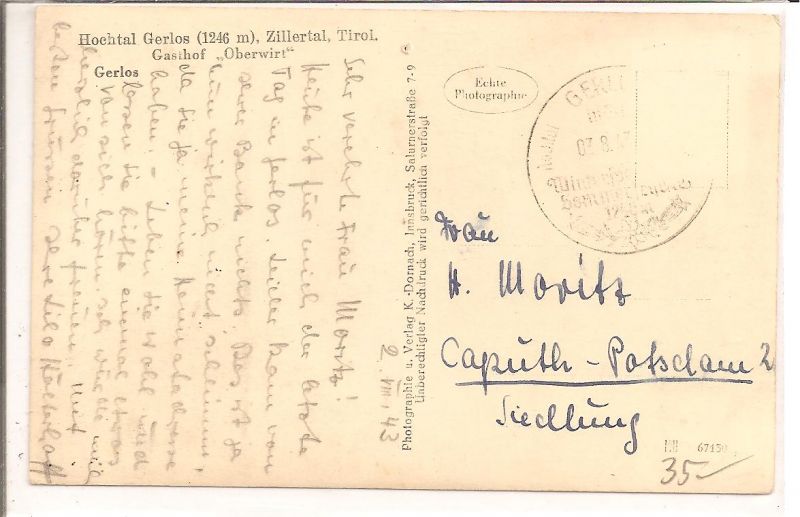 Hochtal Gerlos (1246 m), Zillertal, Tirol.
Gasthof „Oberwirt"
Gerlos
2. VIII. 43
Sehr verehrte Frau Moritz!
Heute ist für mich der letzte
Tag in Gerlos. Leider kam von
Ihrer Bank nichts. Das ist ja
nun wirklich nicht schlimm,
da Sie ja meine Heimatadresse
haben. - Leben Sie wohl und
lassen Sie bitte einmal etwas
von sich hören. Ich würde mich
herzlich darüber freuen. Mit
besten Grüssen Ihre
Photographie u. Verlag K. Dornach, Innsbruck, Salurnerstraße 7-9
Unberechtigter Nachdruck wird gerichtlich verfolgt
Echte
Photographie
Frau
H. Moritz
Caputh-Potsdam 2
Siedlung
67150
35-